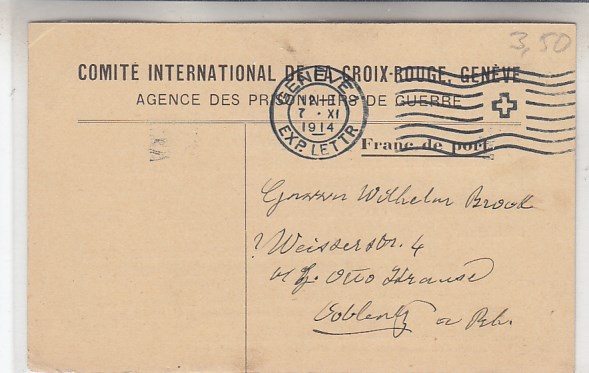 3,50
COMITÉ INTERNATIONAL DE LA CROIX-ROUGE, GENÈVE
AGENCE DES PRISONNIERS DE GUERRE
GENÈVE
7 · XI
1914
EXP. LETTR.
Franc de port.
Wilhelm
Weisserstr. 4
Otto Strause
Coblentz a Rh.